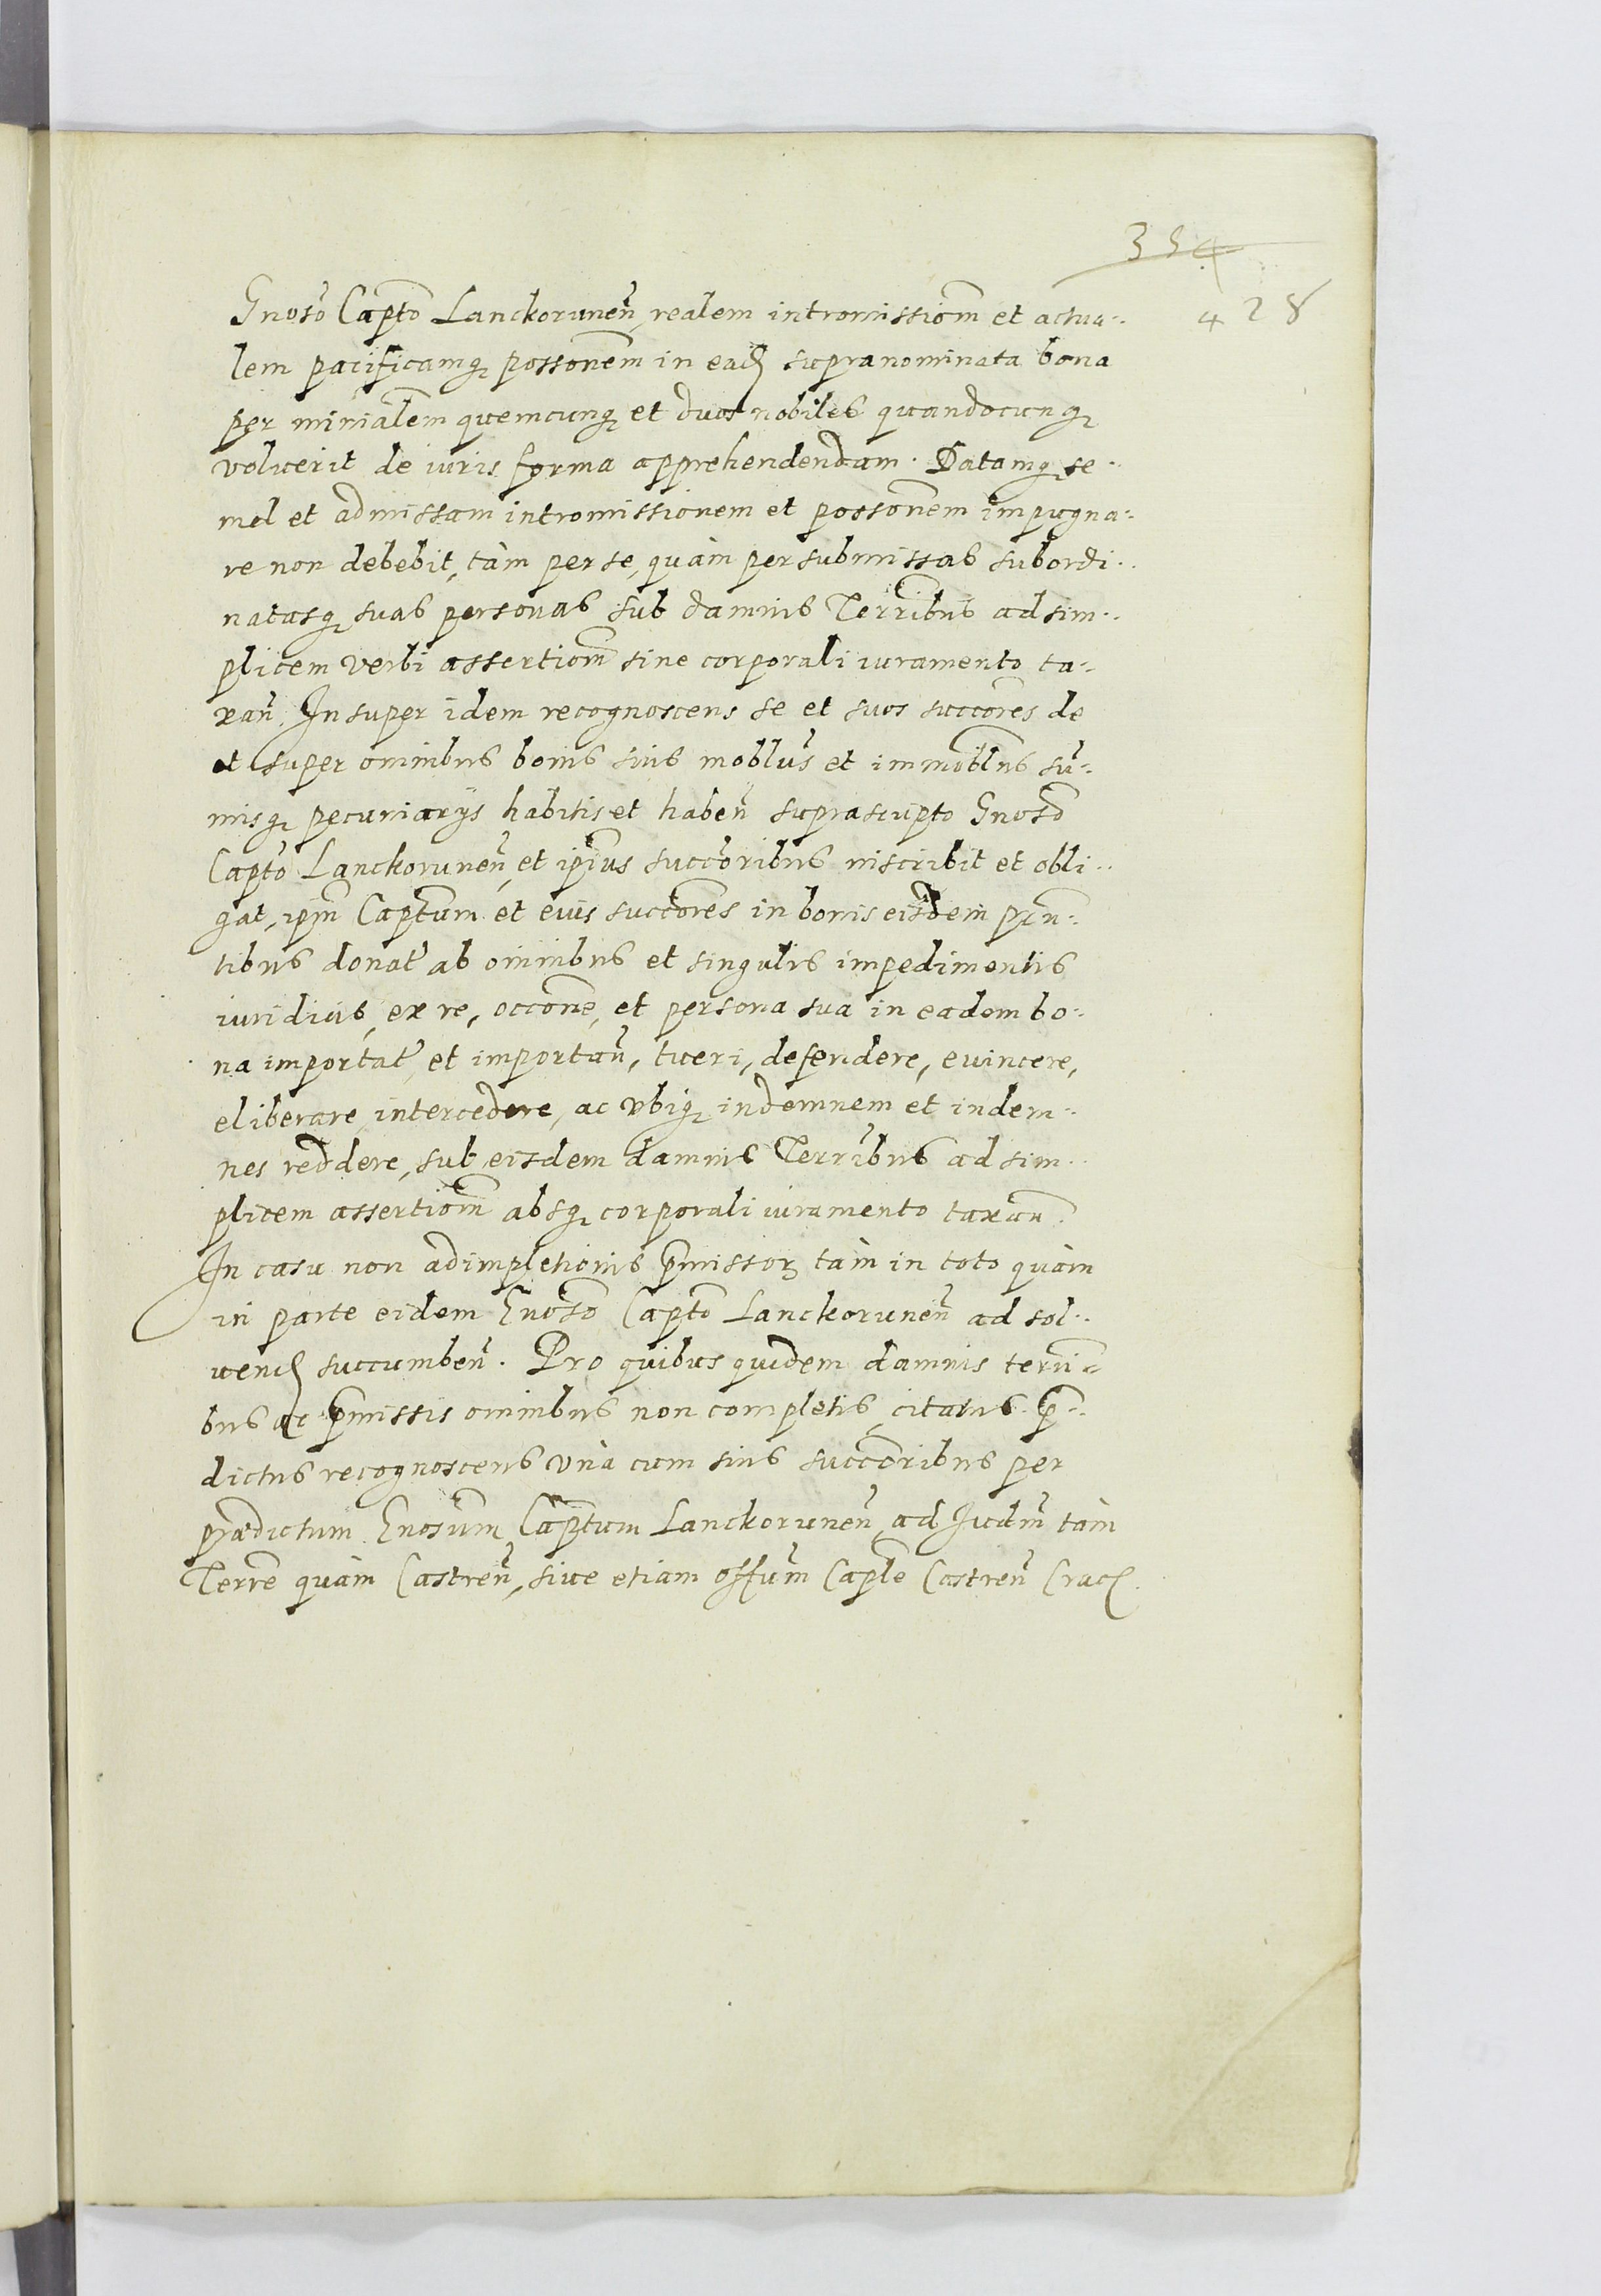 354
428
Gnoso Capto Lanckorunen, realem intromissiom et actua-
lem pacificamq possonem in ead supranominata bona
per minialem quemcunq et duos nobiles quandocunq
voluerit de iuris forma apprehendendam. Datamq se-
mel et admissam intromissionem et possonem impugna-
re non debebit, tàm per se, quàm per submissas subordi-
natasq suas personas sub damnis Terribus ad sim-
plicem verbi assertiom sine corporali iuramento ta-
xan. Insuper idem recognoscens se et suos succores de
et super omnibus bonis suis moblus et immoblus su-
misq pecuniarijs habitis et haben suprascripto Gnoso
Capto Lanckorunen, et ipius succoribus inscribit et obli-
gat, ipm Captum et eius succores in bonis eisdem prn-
tibus donat ab omnibus et singulis impedimentis
iuridicis, ex re, occone, et persona sua in eadem bo-
na importat, et importan, tueri, defendere, euincere,
eliberare, intercedere, ac vbiq indemnem et indem-
nes reddere, sub eisdem damnis Terribus ad sim-
plicem assertiom absq corporali iuramento taxan.
In casu non adimpletionis pmissor tàm in toto quàm
in parte eidem Gnoso Capto Lanckorunen ad sol-
uend succumben. Pro quibus quidem damnis terri-
bus ac pmissis omnibus non completis, citatus p-
dictus recognoscens vnà cum suis succoribus per
prædictum Gnosum Captum Lanckorunen, ad Judm tàm
Terre quàm Castren, siue etiam offum Caple Castren Crac